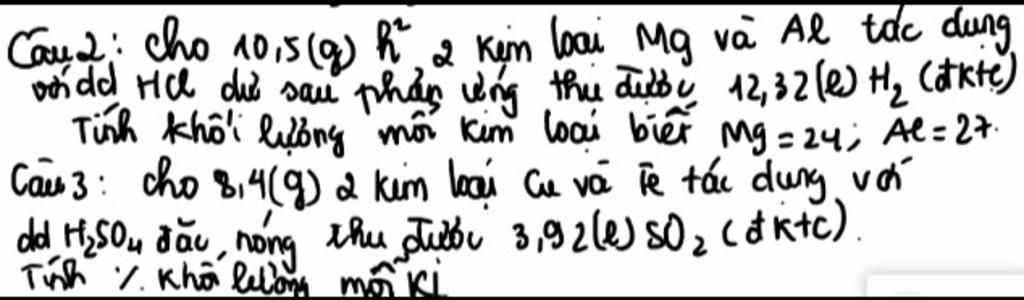 Câu 2: Cho 10,5(g) h² 2 kim loại Mg và Al tác dụng
với dd HCl dư sau phản ứng thu được 12,32(l) H₂ (đktc)
Tính khối lượng mỗi kim loại biết Mg = 24; Al = 27.
Câu 3: Cho 8,4(g) 2 kim loại Cu và Fe tác dụng với
dd H₂SO₄ đặc, nóng thu được 3,92(l) SO₂ (đktc).
Tính % khối lượng mỗi ki